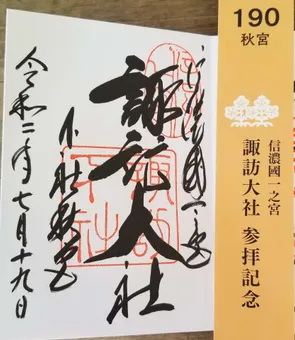 190
秋宮
信濃國一之宮
諏訪大社 参拝記念
信濃國一之宮
諏訪大社
下社秋宮
令和二年七月十九日